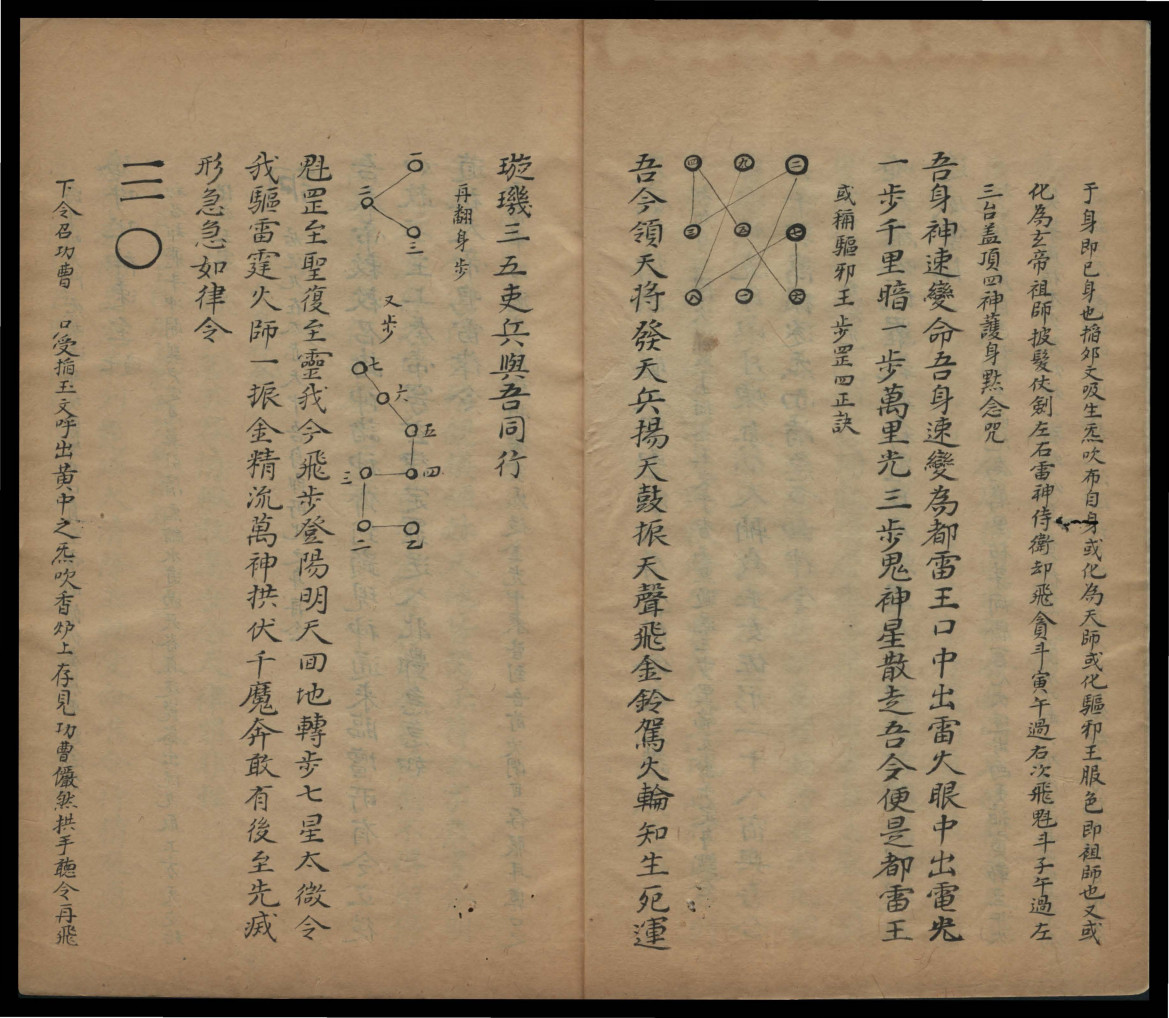 于身即已身也掐夘文吸生炁吹布自身或化為天師或化驅邪王服色即祖師也又或
化為玄帝祖師披髮仗劍左右雷神侍衛却飛貪斗寅午過右次飛魁斗子午過左
三台盖頂四神護身黙念咒
吾身神速變命吾身速變為都雷王口中出雷火眼中出電光
一步千里暗一步萬里光三步鬼神星散走吾今便是都雷王
或稱驅邪王步罡四正訣
二 七 六
九 五 一
四 三 八
吾今領天將發天兵揚天鼓振天聲飛金鈴駕火輪知生死運
璇璣三五吏兵與吾同行
再翻身步
一 二 三
又步
七 六 五 四 三 二 乙
魁罡至聖復至靈我今飛步登陽明天囬地轉步七星太微令
我驅雷霆火師一振金精流萬神拱伏千魔奔敢有後至先㓕
形急急如律令
三二〇
下令召功曹 口受掐玉文呼出黄中之炁吹香炉上存見功曹儼然拱手聽令再飛